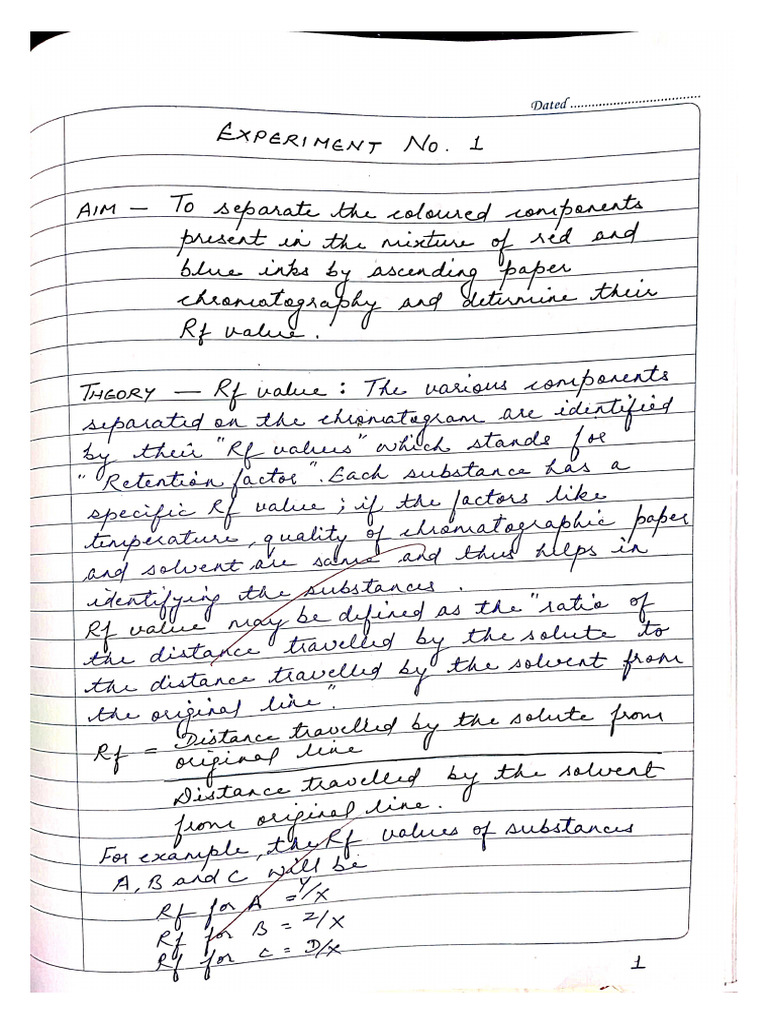 Dated ................................
EXPERIMENT NO. 1
AIM — To separate the coloured components
present in the mixture of red and
blue inks by ascending paper
chromatography and determine their
Rf value.
THEORY — Rf value : The various components
separated on the chromatogram are identified
by their "Rf values" which stands for
"Retention factor". Each substance has a
specific Rf value ; if the factors like
temperature, quality of chromatographic paper
and solvent are same and thus helps in
identifying the substances.
Rf value may be defined as the "ratio of
the distance travelled by the solute to
the distance travelled by the solvent from
the original line".
Rf = Distance travelled by the solute from
original line
Distance travelled by the solvent
from original line.
For example, the Rf values of substances
A, B and C will be
Rf for A = Y/X
Rf for B = Z/X
Rf for C = D/X
1